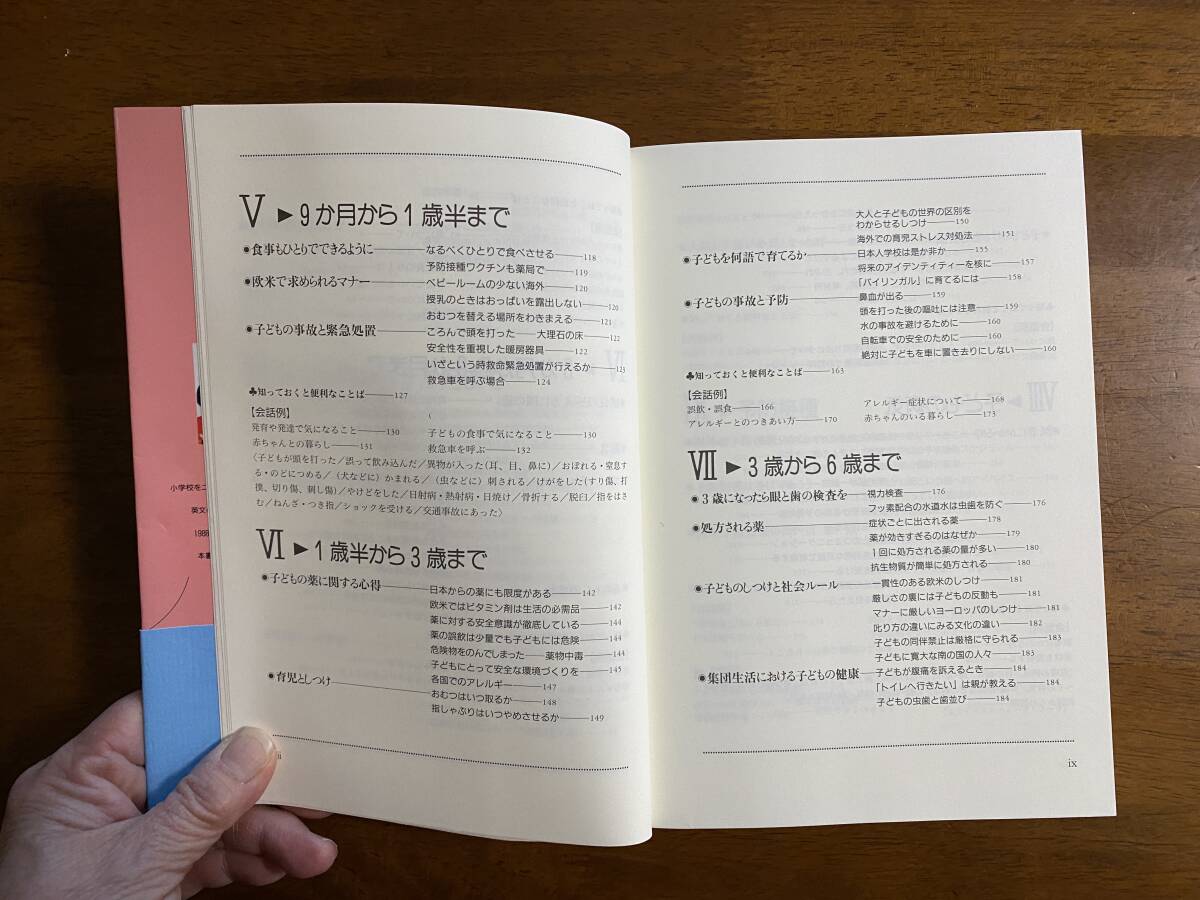 小学校をニ
英文
1988
本書
Ⅴ▶9か月から1歳半まで
●食事もひとりでできるように──なるべくひとりで食べさせる──118
予防接種ワクチンも薬局で──119
●欧米で求められるマナー──ベビールームの少ない海外──120
授乳のときはおっぱいを露出しない──120
おむつを替える場所をわきまえる──121
●子どもの事故と緊急処置──ころんで頭を打った──大理石の床──122
安全性を重視した暖房器具──122
いざという時救命緊急処置が行えるか──123
救急車を呼ぶ場合──124
♣知っておくと便利なことば──127
【会話例】
発育や発達で気になること──130 子どもの食事で気になること──130
赤ちゃんとの暮らし──131 救急車を呼ぶ──132
〈子どもが頭を打った／誤って飲み込んだ／異物が入った(耳、目、鼻に)／おぼれる・窒息す
る・のどにつめる／（犬などに）かまれる／（虫などに）刺される／けがをした(すり傷、打
撲、切り傷、刺し傷)／やけどをした／日射病・熱射病・日焼け／骨折する／脱臼／指をはさ
む／ねんざ・つき指／ショックを受ける／交通事故にあった〉
Ⅵ▶1歳半から3歳まで
●子どもの薬に関する心得──日本からの薬にも限度がある──142
欧米ではビタミン剤は生活の必需品──142
薬に対する安全意識が徹底している──144
薬の誤飲は少量でも子どもには危険──144
危険物をのんでしまった──薬物中毒──144
子どもにとって安全な環境づくりを──145
●育児としつけ──各国でのアレルギー──147
おむつはいつ取るか──148
指しゃぶりはいつやめさせるか──149
大人と子どもの世界の区別を
わからせるしつけ──150
海外での育児ストレス対処法──151
●子どもを何語で育てるか──日本人学校は是か非か──155
将来のアイデンティティーを核に──157
「バイリンガル」に育てるには──158
●子どもの事故と予防──鼻血が出る──159
頭を打った後の嘔吐には注意──159
水の事故を避けるために──160
自転車での安全のために──160
絶対に子どもを車に置き去りにしない──160
♣知っておくと便利なことば──163
【会話例】
誤飲・誤食──166 アレルギー症状について──168
アレルギーとのつきあい方──170 赤ちゃんのいる暮らし──173
Ⅶ▶3歳から6歳まで
●3歳になったら眼と歯の検査を──視力検査──176
フッ素配合の水道水は虫歯を防ぐ──176
●処方される薬──症状ごとに出される薬──178
薬が効きすぎるのはなぜか──179
1回に処方される薬の量が多い──180
抗生物質が簡単に処方される──180
●子どものしつけと社会ルール──一貫性のある欧米のしつけ──181
厳しさの裏には子どもの反動も──181
マナーに厳しいヨーロッパのしつけ──181
叱り方の違いにみる文化の違い──182
子どもの同伴禁止は厳格に守られる──183
子どもに寛大な南の国の人々──183
●集団生活における子どもの健康──子どもが腹痛を訴えるとき──184
「トイレへ行きたい」は親が教える──184
子どもの虫歯と歯並び──184
ix